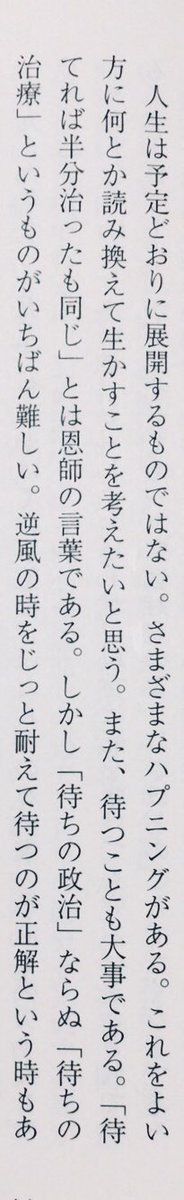 人生は予定どおりに展開するものではない。さまざまなハプニングがある。これをよい
方に何とか読み換えて生かすことを考えたいと思う。また、待つことも大事である。「待
てれば半分治ったも同じ」とは恩師の言葉である。しかし「待ちの政治」ならぬ「待ちの
治療」というものがいちばん難しい。逆風の時をじっと耐えて待つのが正解という時もあ